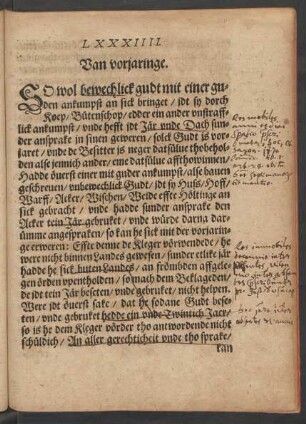 LXXXIIII.
Van vorjaringe.
SO wol bewechlick gudt mit einer gu⸗
den ankumpst an sick bringet / idt sy dorch
Koep / Bütenschop / edder ein ander vnstraff⸗
lick ankumpst / vnde hefft idt Jar vnde Dach sun⸗
der ansprake in sinen geweren / solck Gudt is vor⸗
jaret / vnde de Besitter is neger datsülue thobehol⸗
den alse jemich ander / eme datsülue affthowinnen /
Hadde öuerst einer mit guder ankumpst / alse bauen
geschreuen / vnbewechlick Gudt / idt sy Huss / Hoff /
Warff / Acker / Wischen / Weide effte Höltinge an
sick gebracht / vnde hadde sunder ansprake den
Acker tein Jar gebruket / vnde würde darna dar⸗
umme angespraken / so kan he sick mit der vorjarin⸗
ge erweren: Effte denne de Kleger vörwendede / he
were nicht binnen Landes gewesen / sunder etlike jar
hadde he sick buten Landes / an frömbden affgele⸗
gen örden vpentholden / so mach dem Beklageden /
de idt tein Jar beseten / vnde gebruket / nicht helpen.
Were idt öuerst sake / dat he sodane Gudt bese⸗
ten / vnde gebruket hedde ein vnde Twintich Jaer /
so is he dem Kleger vörder tho antwordende nicht
schüldich / An aller gerechticheit vnde tho sprake /
kan